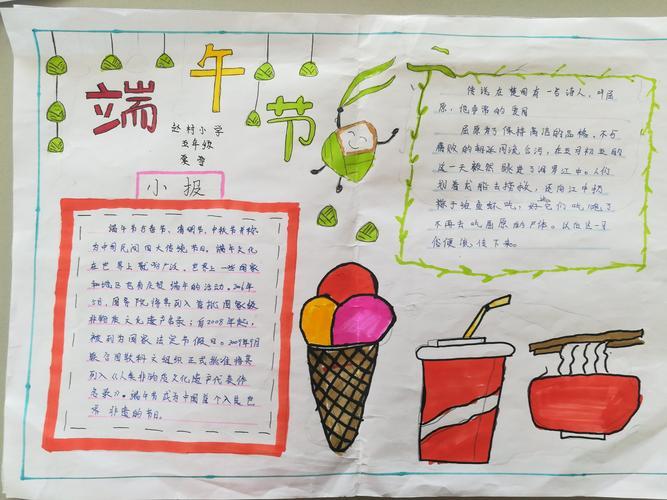 端午节
赵村小学
五年级
小报
端午节与春节、清明节、中秋节并称
为中国民间四大传统节日。端午文化
在世界上影响广泛，世界上一些国家
和地区也有庆贺端午的活动。2006年
5月，国务院将其列入首批国家级
非物质文化遗产名录；自2008年起，
被列为国家法定节假日。2009年9月
联合国教科文组织正式批准将其
列入《人类非物质文化遗产代表作
名录》。端午节成为中国首个入选世
界非遗的节日。
传说在楚国有一名诗人，叫屈
原，他非常的爱国
屈原为了保持高洁的品格，不与
腐败的朝廷同流合污，在五月初五的
这一天毅然跳进了汨罗江中。人们
划着龙船去捞救，还向江中扔
粽子给鱼虾吃，好让它们吃饱了
不再去吃屈原的尸体。从此这一习
俗便流传下来。